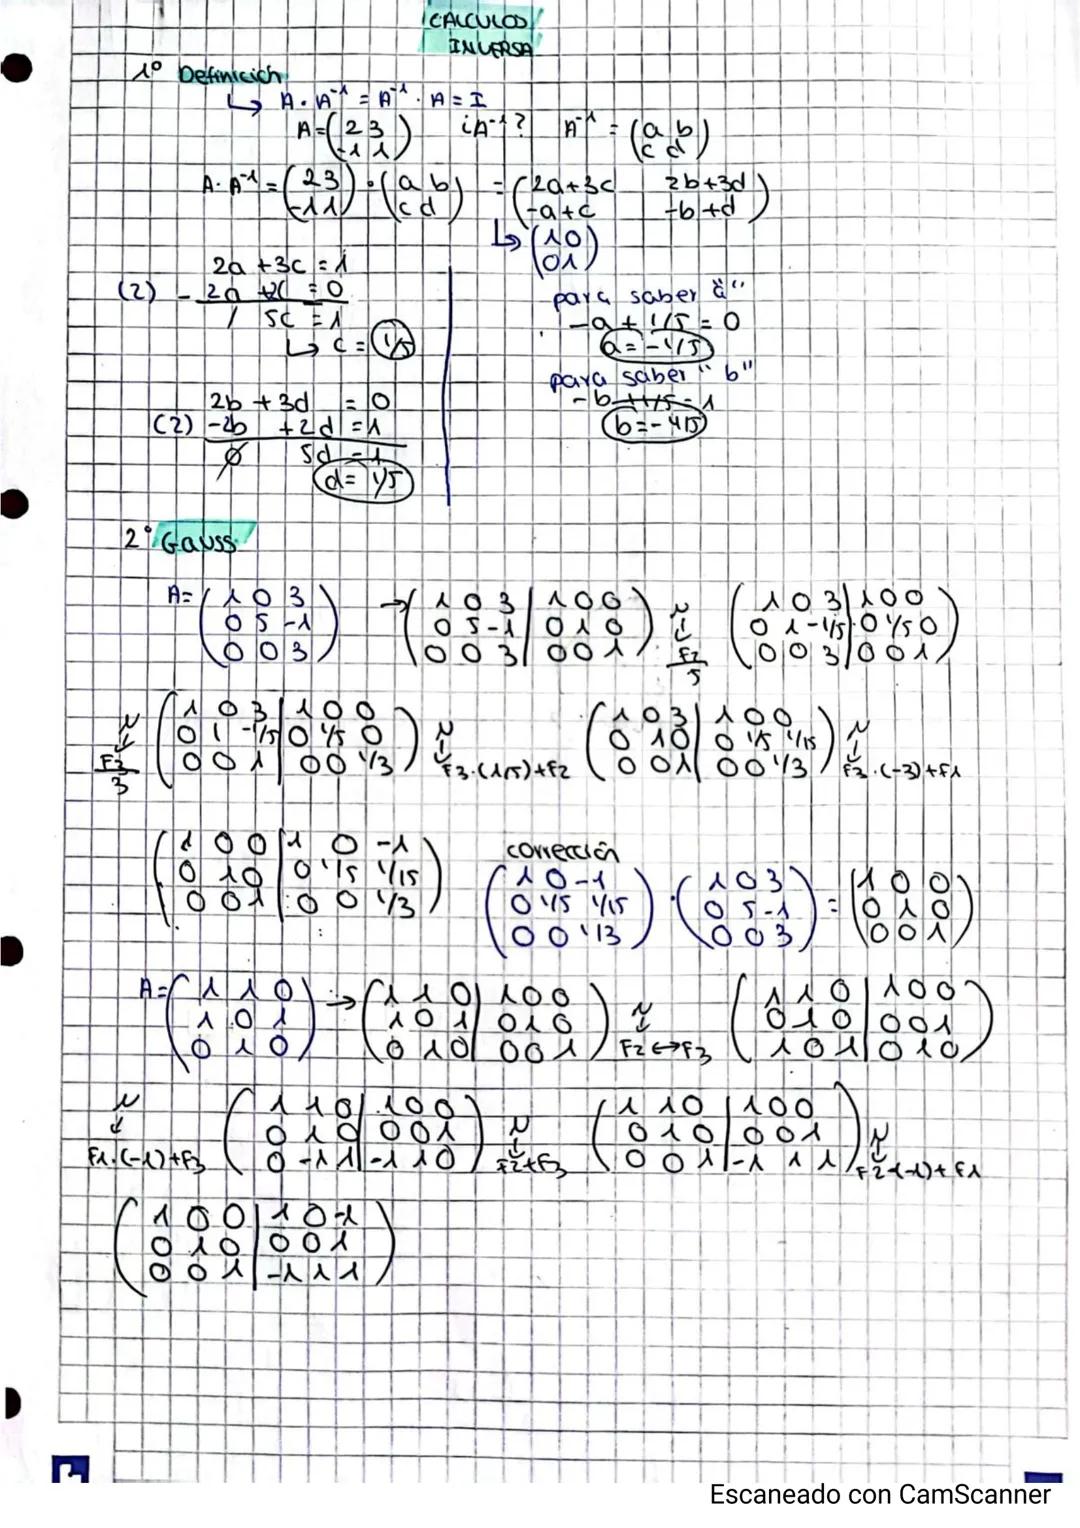 CALCULOS
INVERSA
1º Definición
↳ A · A⁻¹ = A⁻¹ · A = I
A = (2 3 / -1 1) ¿A⁻¹? A⁻¹ = (a b / c d)
A · A⁻¹ = (2 3 / -1 1) · (a b / c d) = (2a+3c 2b+3d / -a+c -b+d)
↳ (1 0 / 0 1)
2a + 3c = 1
(2) - 2a +2c = 0
/ 5c = 1
↳ c = 1/5
para saber "a"
-a + 1/5 = 0
a = -1/5
para saber "b"
-b + 1/5 = 1
b = -4/5
2b + 3d = 0
(2) -2b + 2d = 1
0 5d = 1
d = 1/5
2º Gauss
A = (1 0 3 / 0 5 -1 / 0 0 3) → (1 0 3 | 1 0 0 / 0 5 -1 | 0 1 0 / 0 0 3 | 0 0 1) ~ ↓ F2/5 (1 0 3 | 1 0 0 / 0 1 -1/5 | 0 1/5 0 / 0 0 3 | 0 0 1)
~ ↓ F3/3 (1 0 3 | 1 0 0 / 0 1 -1/5 | 0 1/5 0 / 0 0 1 | 0 0 1/3) ~ ↓ F3·(1/5)+F2 (1 0 3 | 1 0 0 / 0 1 0 | 0 1/5 1/15 / 0 0 1 | 0 0 1/3) ~ ↓ F3·(-3)+F1
(1 0 0 | 1 0 -1 / 0 1 0 | 0 1/5 1/15 / 0 0 1 | 0 0 1/3)
corrección
(1 0 -1 / 0 1/5 1/15 / 0 0 1/3) · (1 0 3 / 0 5 -1 / 0 0 3) = (1 0 0 / 0 1 0 / 0 0 1)
A = (1 1 0 / 1 0 1 / 0 1 0) → (1 1 0 | 1 0 0 / 1 0 1 | 0 1 0 / 0 1 0 | 0 0 1) ~ ↓ F2↔F3 (1 1 0 | 1 0 0 / 0 1 0 | 0 0 1 / 1 0 1 | 0 1 0)
~ ↓ F1·(-1)+F3 (1 1 0 | 1 0 0 / 0 1 0 | 0 0 1 / 0 -1 1 | -1 1 0) ~ ↓ F2+F3 (1 1 0 | 1 0 0 / 0 1 0 | 0 0 1 / 0 0 1 | -1 1 1) ~ ↓ F2·(-1)+F1
(1 0 0 | 1 0 -1 / 0 1 0 | 0 0 1 / 0 0 1 | -1 1 1)
Escaneado con CamScanner